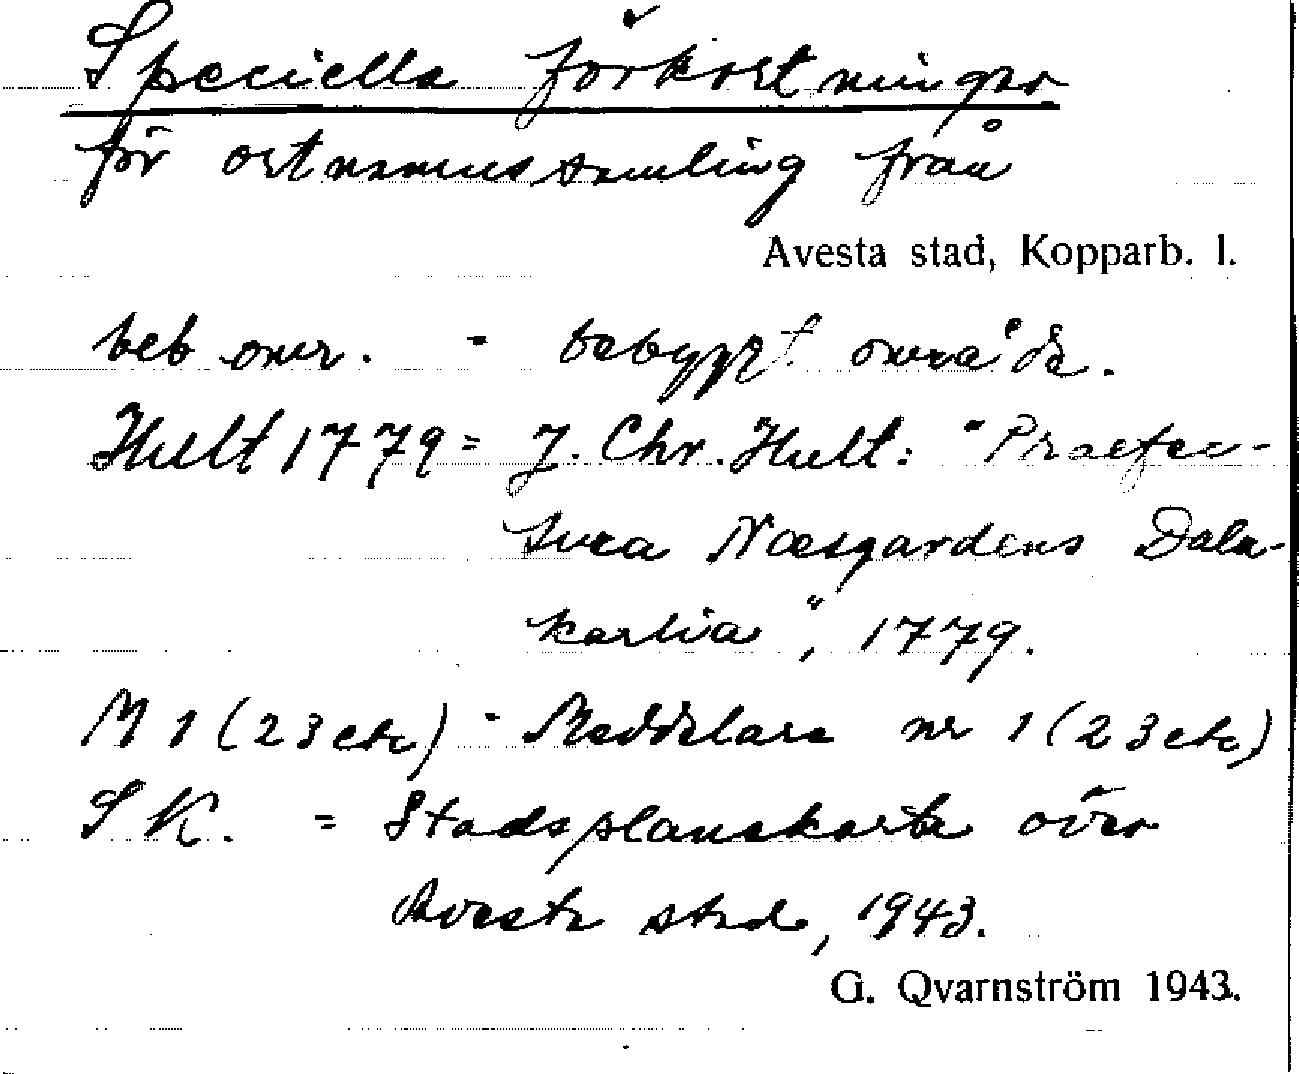 Speciella förkortningar
för ortnamnssamling från
Avesta stad, Kopparb. l.
beb omr. = bebyggt område.
Hult 1779 = J. Chr. Hult: "Praefec-
tura Næsgardens Dala-
karlia", 1779.
M 1 (23 etc) = Meddelare nr 1 (23 etc)
S K. = Stadsplanekarta över
Avesta stad, 1943.
G. Qvarnström 1943.